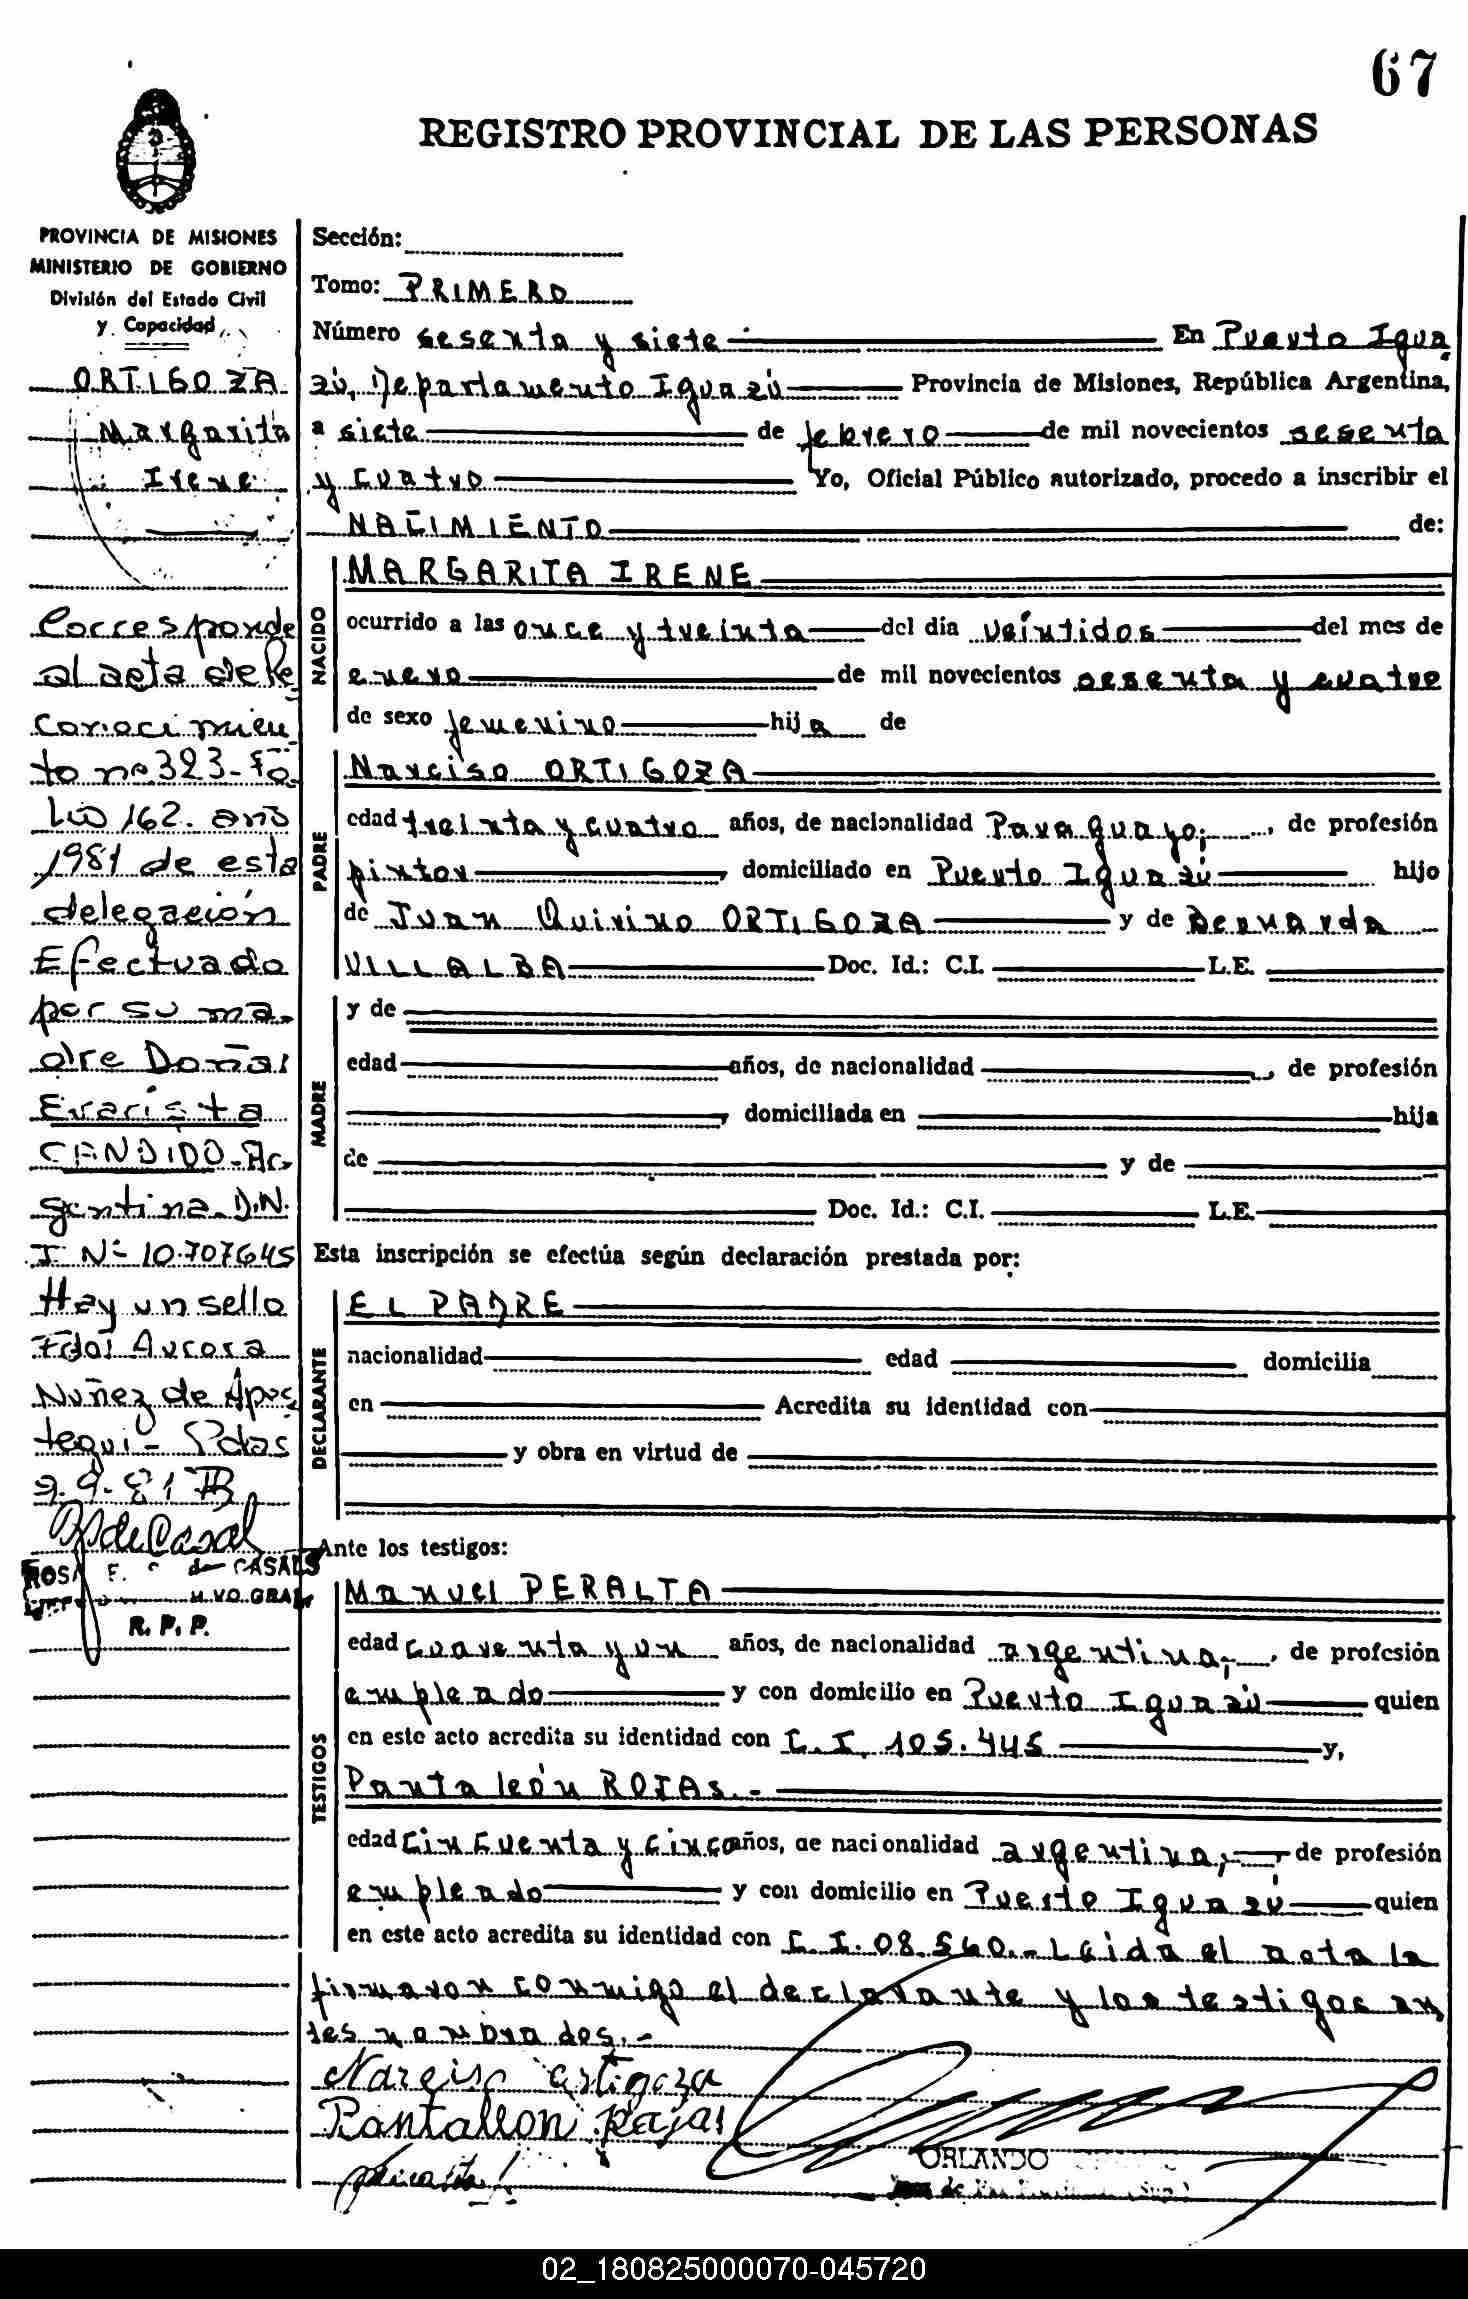 67
REGISTRO PROVINCIAL DE LAS PERSONAS
PROVINCIA DE MISIONES
MINISTERIO DE GOBIERNO
División del Estado Civil
y Capacidad
ORTIGOZA
Margarita
Irene
Corresponde
al acta de Re
conocimien
to no 323-Fo
lio 162. año
1981 de esta
delegación
Efectuado
por su ma-
dre Doña:
Evarista
CANDIDO-Ar-
gentina-D.N.
I. Nº 10.707645
Hay un sello
Fdo: Aurora
Nuñez de Apos
tegui- Pdas
9.9.81
ROSA E. de CASALS
R. P. P.
Sección:
Tomo: PRIMERO
Número sesenta y siete En Puerto Igua
zú, Departamento Iguazú Provincia de Misiones, República Argentina,
a siete de febrero de mil novecientos sesenta
y cuatro Yo, Oficial Público autorizado, procedo a inscribir el
NACIMIENTO de:
NACIDO
MARGARITA IRENE
ocurrido a las once y treinta del día veintidos del mes de
enero de mil novecientos sesenta y cuatro
de sexo femenino hija de
PADRE
Narciso ORTIGOZA
edad treinta y cuatro años, de nacionalidad Paraguayo; , de profesión
pintor , domiciliado en Puerto Iguazú hijo
de Juan Quirino ORTIGOZA y de Bernarda
VILLALBA Doc. Id.: C.I. L.E.
MADRE
y de
edad años, de nacionalidad , de profesión
, domiciliada en hija
de y de
Doc. Id.: C.I. L.E.
Esta inscripción se efectúa según declaración prestada por:
DECLARANTE
EL PADRE
nacionalidad edad domicilia
en Acredita su identidad con
y obra en virtud de
Ante los testigos:
TESTIGOS
Manuel PERALTA
edad cuarenta y un años, de nacionalidad argentina; , de profesión
empleado y con domicilio en Puerto Iguazú quien
en este acto acredita su identidad con C.I. 105.445 y,
Pantaleón ROJAS.-
edad cincuenta y cinco años, de nacionalidad argentina; , de profesión
empleado y con domicilio en Puerto Iguazú quien
en este acto acredita su identidad con C.I. 08.560.- Leida el acta la
firmaron conmigo el declarante y los testigos an
tes nombrados.-
Narciso Ortigoza
Pantalion Rojas
ORLANDO
02_180825000070-045720